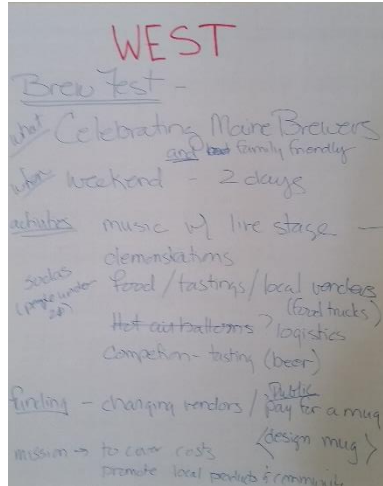 WEST
Brew Fest -
what Celebrating Maine Brewers
and family friendly
when weekend - 2 days
activities music w/ live stage -
demonstrations
sodas food / tastings / local vendors
(people under 21) (food trucks)
Hot air balloons ? logistics
Competition - tasting (beer)
funding - charging vendors / Public pay for a mug
<design mug>
mission → to cover costs
promote local products & community